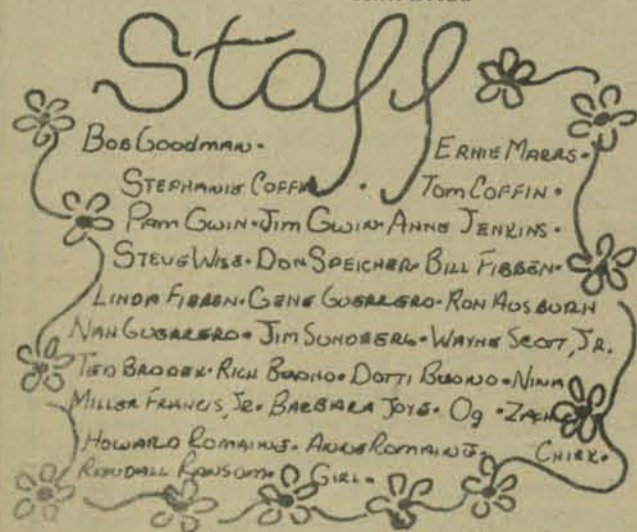 Staff
Bob Goodman • Ernie Marrs •
Stephanie Coffin • Tom Coffin •
Pam Gwin • Jim Gwin • Anne Jenkins •
Steve Wise • Don Speicher • Bill Fibben •
Linda Fibben • Gene Guerrero • Ron Ausburn
Nan Guerrero • Jim Sundberg • Wayne Scott, Jr.
Ted Brodek • Rich Buono • Dotti Buono • Nina
Miller Francis, Jr. • Barbara Joye • Og •
Howard Romaine • Anne Romaine • Chirk •
Randall Ransom • Girl •